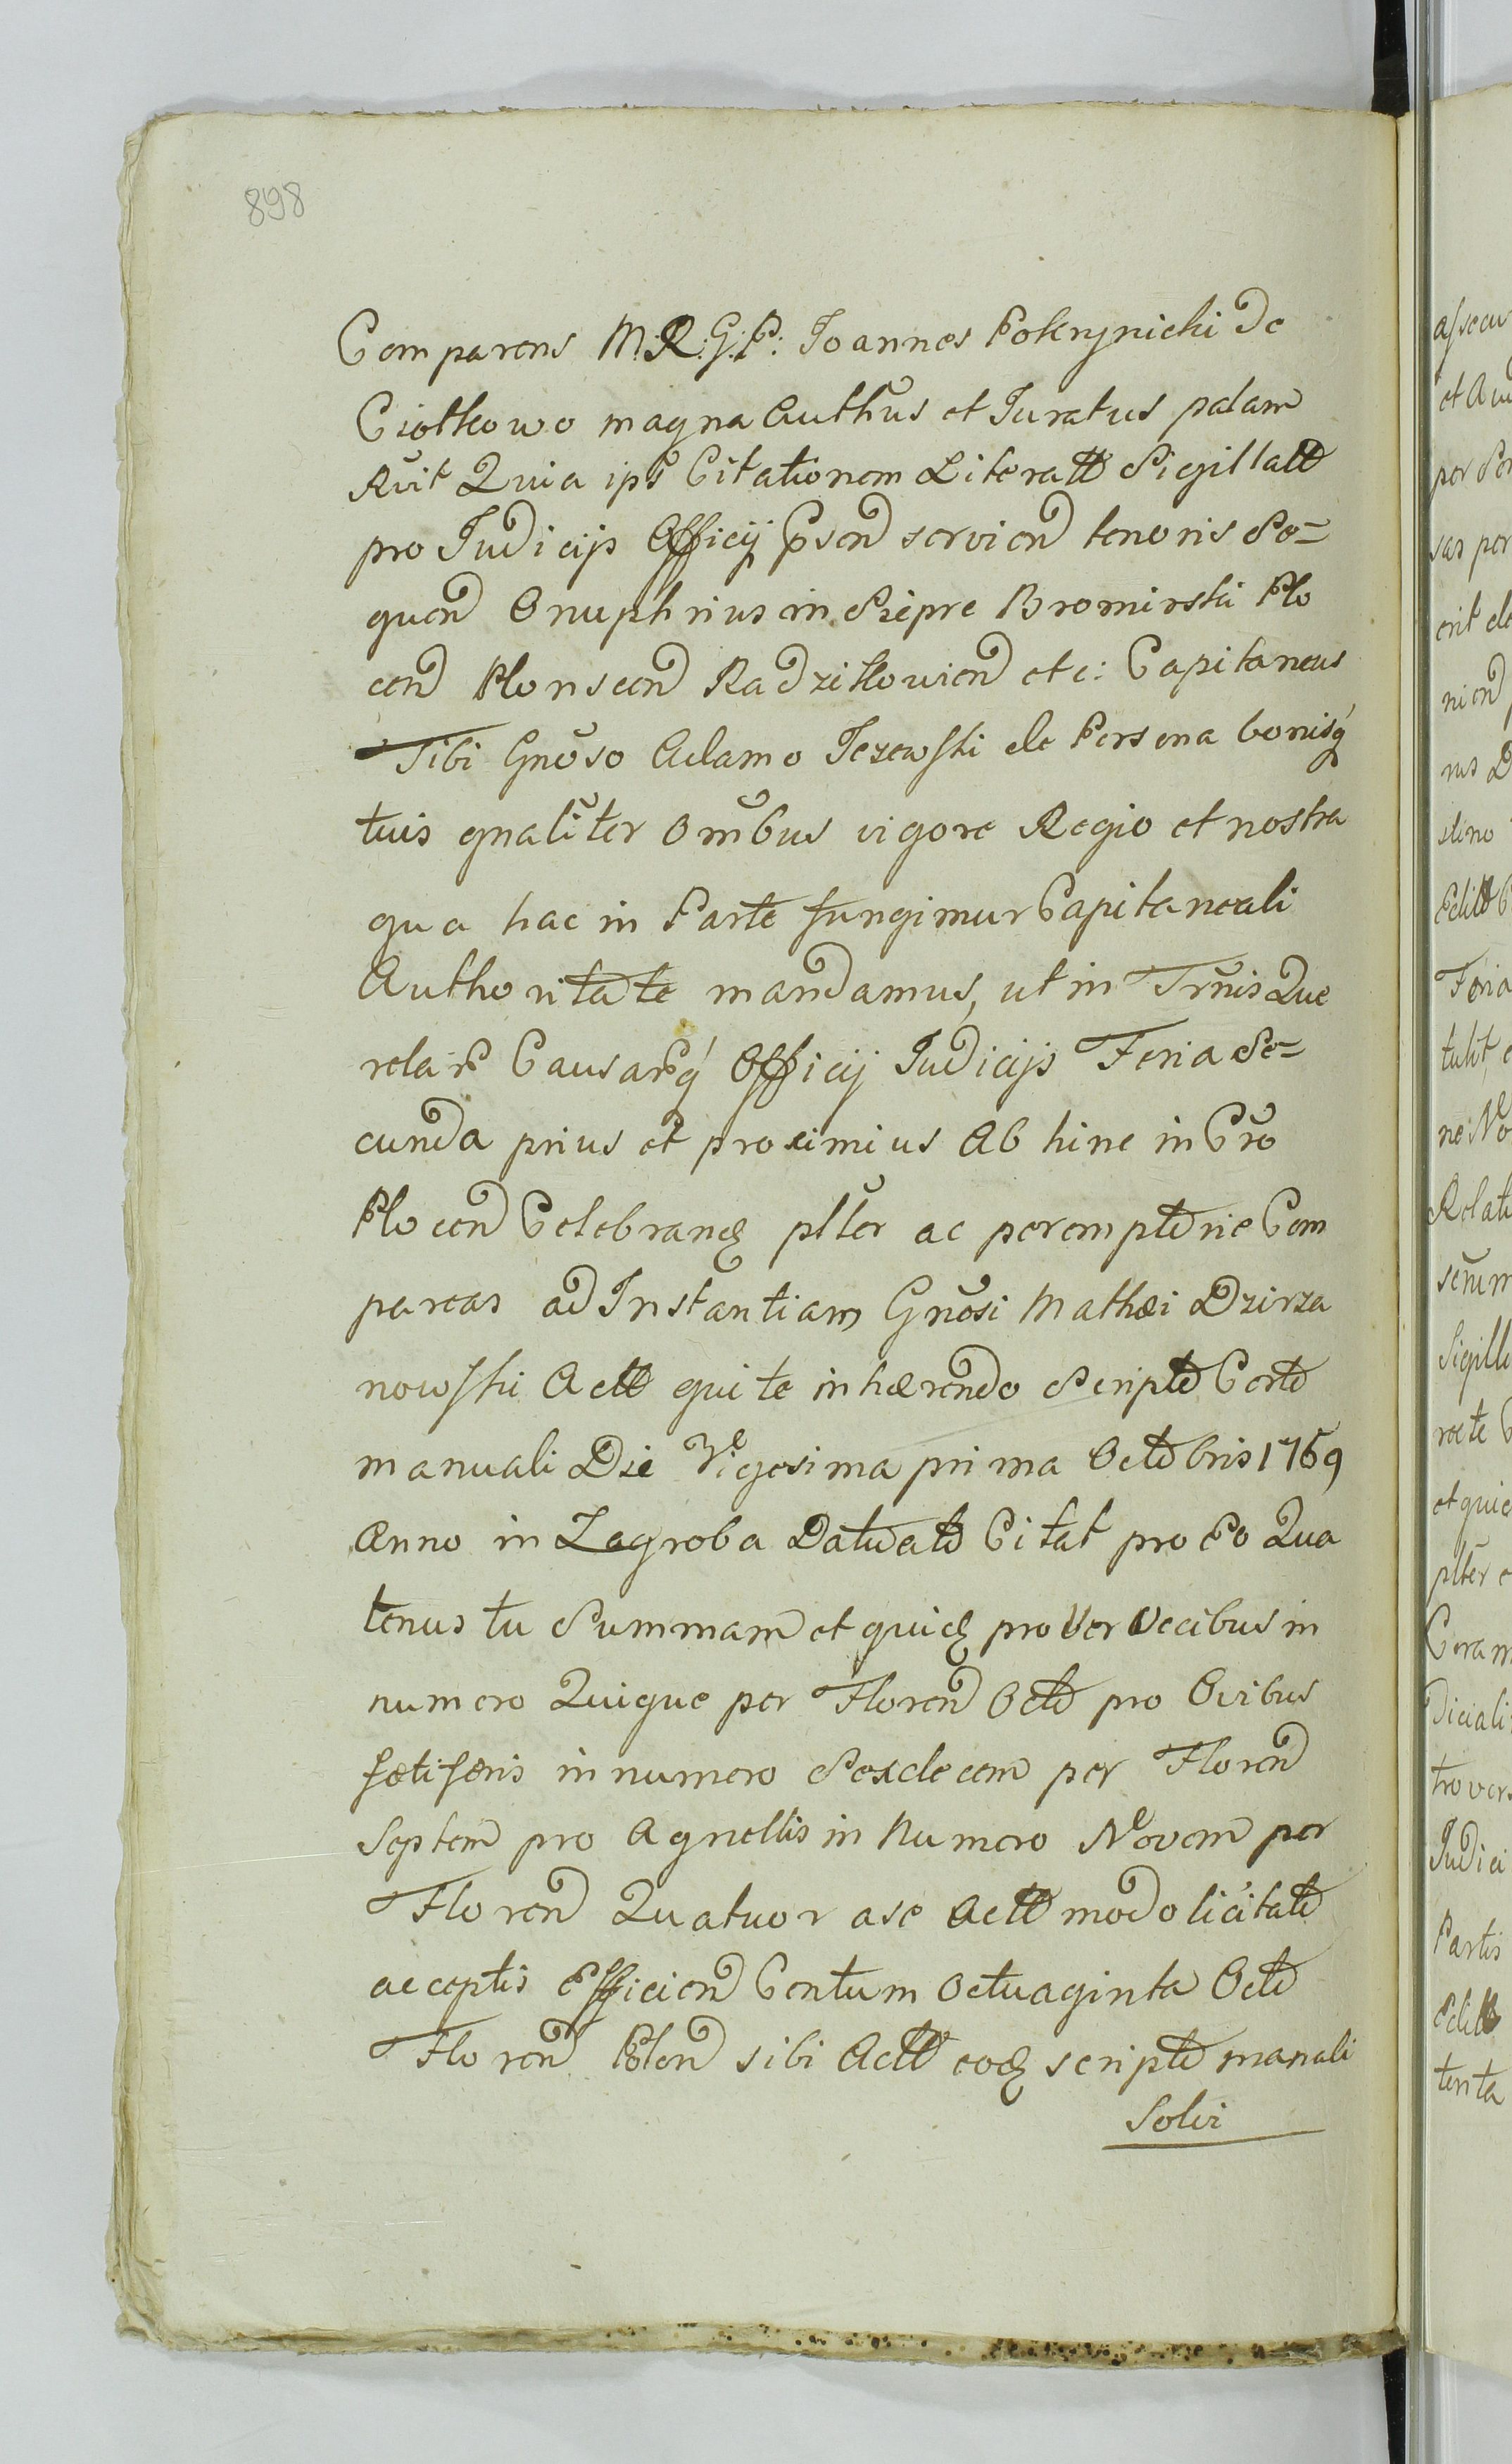 898
Comparens M:R:G:P: Joannes Pokrzynicki de
Ciołkowo magna Authũs et Juratus palam
Rũit Quia ips̃ Citationem Literatt Sigillatt
pro Judicijs Officij Psen̄ servien̄ tenoris Se=
quen̄ Onuphrius in Sierpre Bromirski Plo
cen̄ Plonscen̄ Radzikowien̄ etc: Capitaneus
Tibi Gnõso Adamo Jezewski de Persona bonisq́
tuis gnalĩter Om̃bus vigore Regio et nostra
qua hac in Parte fungimur Capitaneali
Authoritate mandamus, ut in Trñis Que
relar̃ Causarq́ Officij Judicijs Feria Se=
cunda prius et proximius Ab hinc in Cr̃o
Plocen̄ Celebranđ pltẽr ac peremptorie Com
pareas ad Instantiam Gnõsi Mathæi Dzirza
nowski Actt qui te inhærendo Scripto Certo
manuali Die Vigesima prima Octobris 1769
Anno in Zagroba Datuato Citat pro Eo Qua
tenus tu Summam et quiđ pro Ververcibus in
numero Quique per Floren̄ Octo pro Ovibus
fætiferis in numero Sexdecem per Floren̄
Septem pro Agnellis in Numero Novem per
Floren̄ Quatuor a se Actt modo licitato
acceptis Efficien̄ Centum Octuaginta Octo
Floren̄ Polon̄ sibi Actt eođ scripto manali
Solvi
assecu
et Au
per Per
sas per
erit de
nien̄
nus D
dino
Editt
Feria
tulit,
ne No
Relati
senim
Sigill
rocte
et quie
pltẽr
Coram
diciali
trovers
Judici
Partis
Editt
tenta